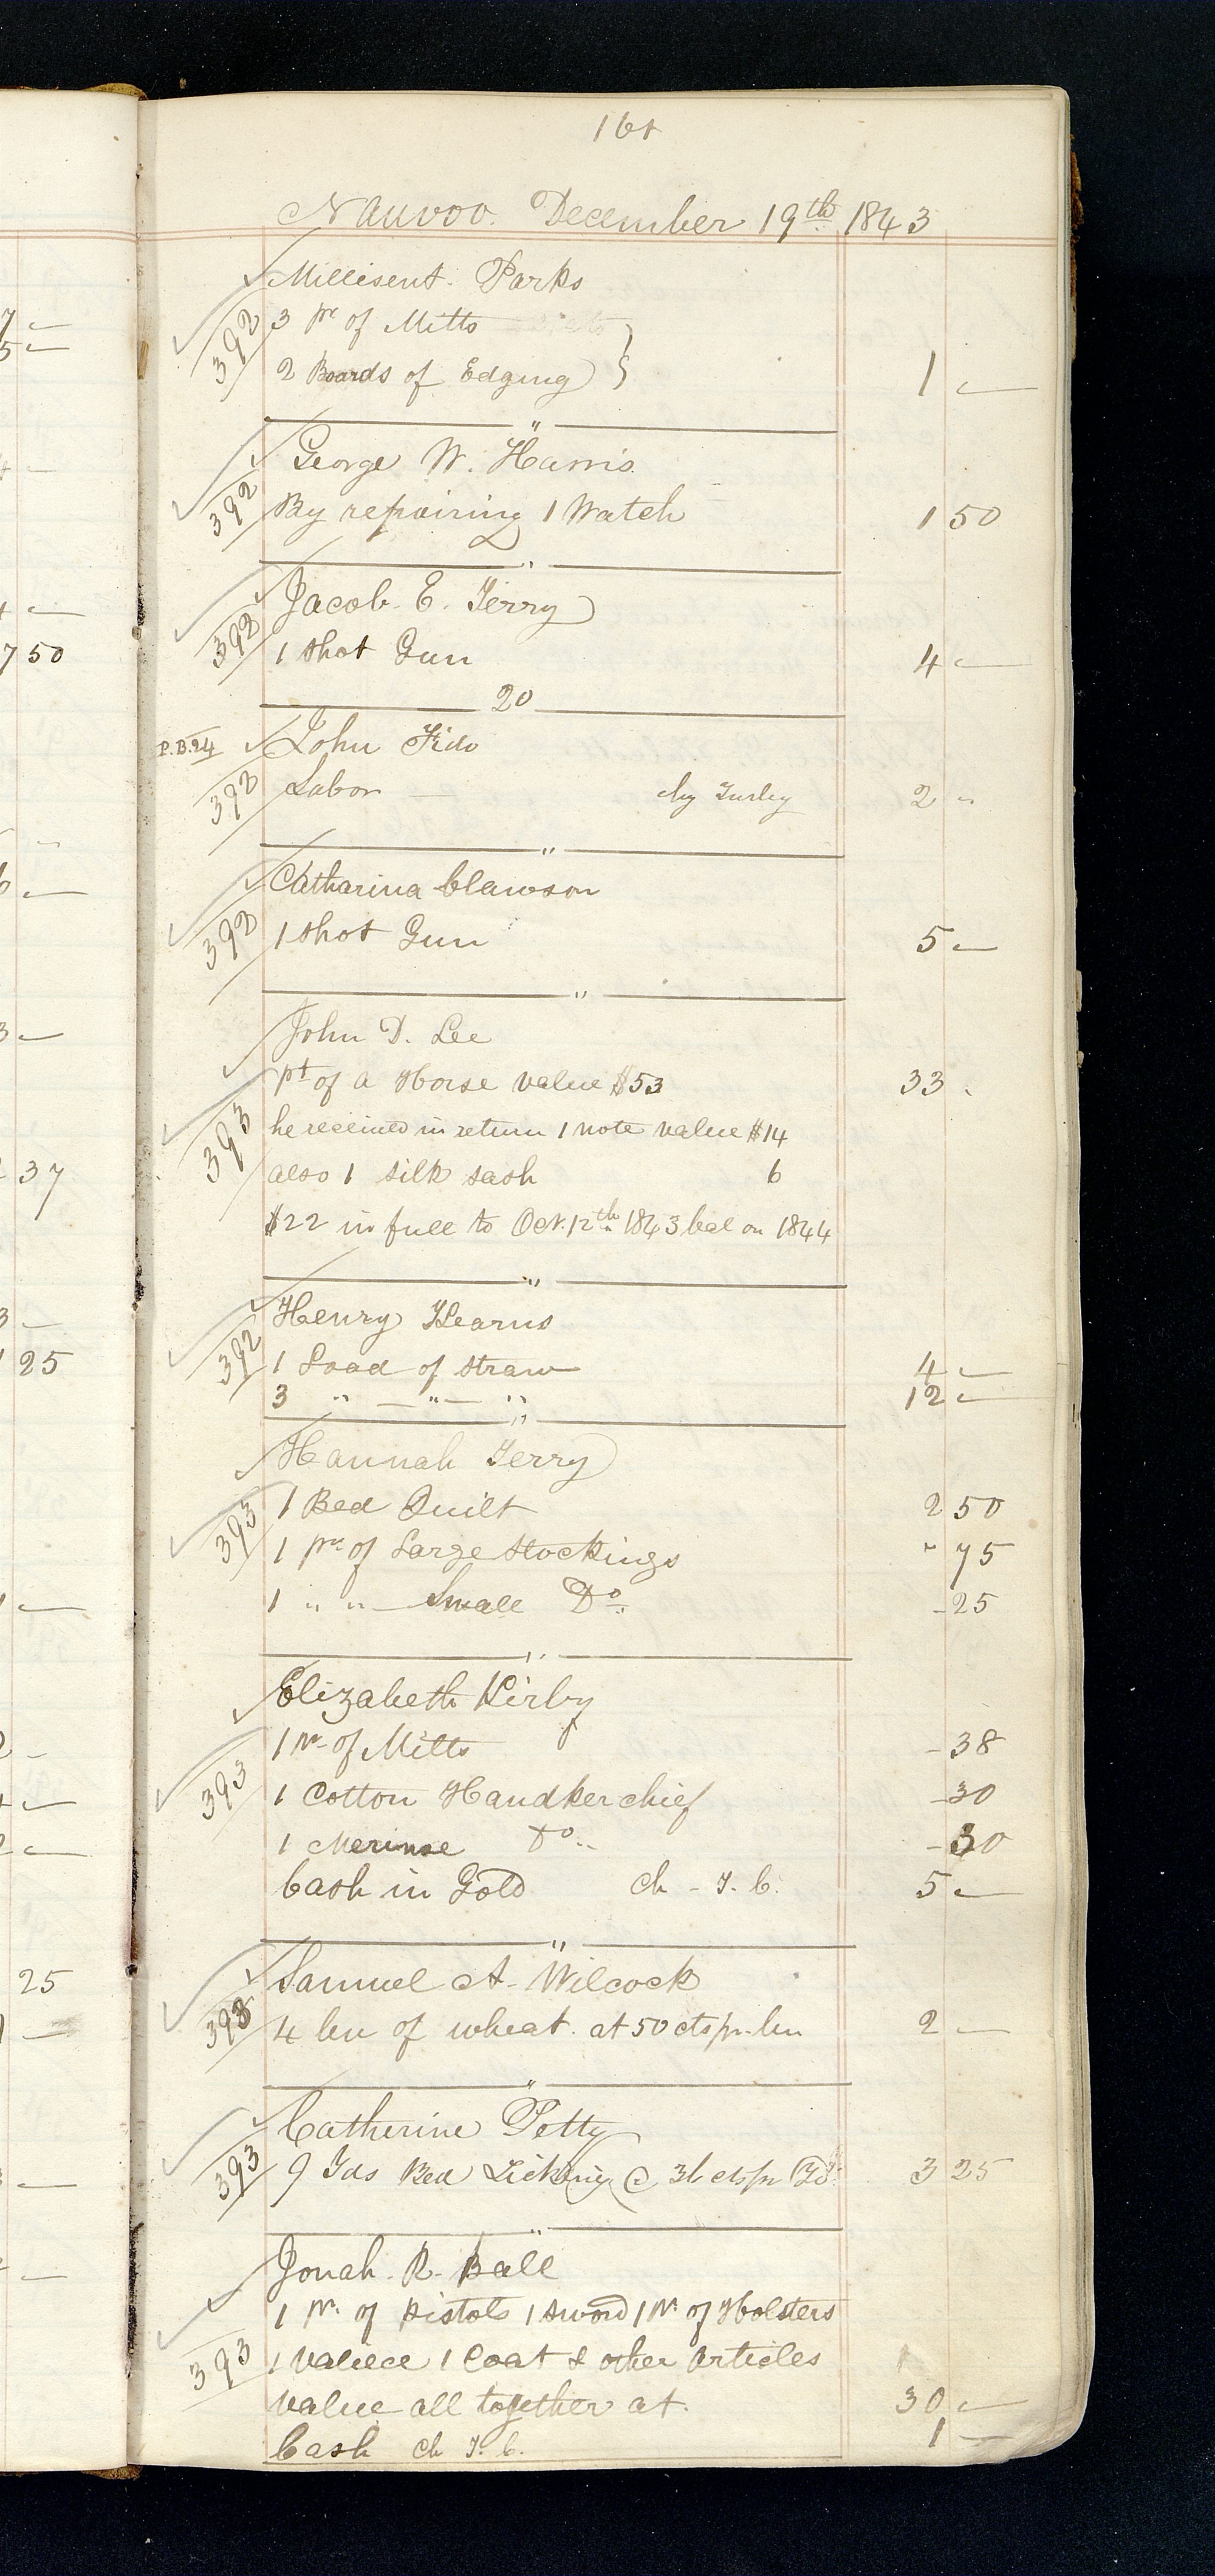 161
Nauvoo December 19th 1843
Millisent Parks
392 3 pr of Mitts
2 Boards of Edging } 1 —
"
George W. Harris
392 By repairing 1 Watch 1 50
"
Jacob E. Terry
392 1 Shot Gun 4 —
20
P.B.24 John Fido
392 Labor — by Turley 2 "
"
Catharina Clawson
392 1 Shot Gun 5 —
"
John D. Lee
pt of a Horse value $53 33 .
393 he received in return 1 note value $14
also 1 silk sash 6
$22 in full to Oct. 12th 1843 bal on 1844
"
Henry Kearns
392 1 Load of Straw 4 —
3 " — " — " 12 —
"
Hannah Terry
393 1 Bed Quilt 2 50
1 pr of Large Stockings " 75
1 " " — Small Do - 25
"
Elizabeth Kirby
1 pr of Mitts - 38
393 1 Cotton Handkerchief - 30
1 Merinoe Do - 30
Cash in Gold Ch - T. C. 5 —
"
Samuel A. Wilcock
393 4 bu of wheat. at 50 cts pr. bu 2 —
"
Catherine Petty
393 9 Yds Bed Ticking @ 36 cts pr Yd 3 25
"
Jonah. R. Ball
1 pr. of Pistols 1 Sword 1 pr. of Holsters
393 1 valiece 1 Coat & other Articles
value all together at. 30 —
Cash Ch T. C. 1 —
7 —
5 —
4 —
4 —
7 50
6 —
3 —
2 37
3 —
1 25
1 —
25